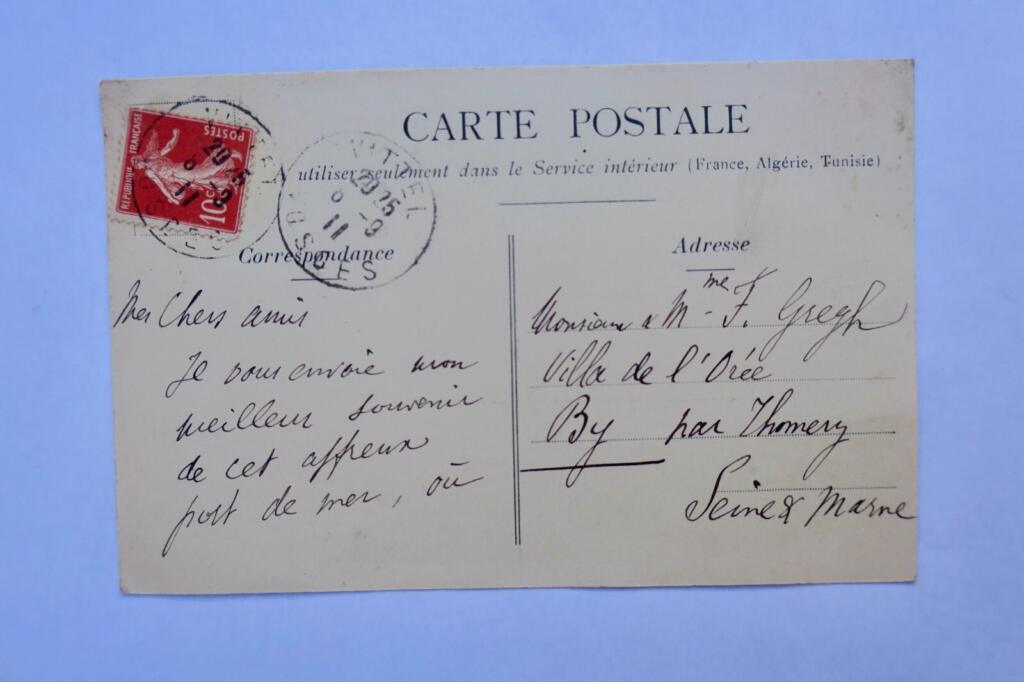 CARTE POSTALE
utiliser seulement dans le Service intérieur (France, Algérie, Tunisie)
REPUBLIQUE FRANÇAISE
POSTES
10c
VITTEL
20 25
8 -9
11
VOSGES
Correspondance
Adresse
Mes Chers amis
Je vous envoie mon
meilleur souvenir
de cet affreux
port de mer, où
Monsieur & Mme F. Gregh
Villa de l'Orée
By par Thomery
Seine & Marne